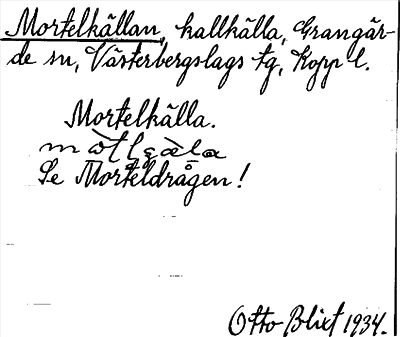 Mortelkällan, kallkälla, Grangär-
de sn, Västerbergslags tg, Kopp l.
Mortelkälla.
Se Morteldrågen!
Otto Blixt 1934.